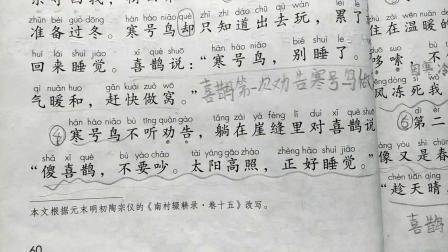 zhǔn bèi guò dōng hán hào niǎo què zhǐ zhī dào chū qù wán lèi le
准备过冬。寒号鸟却只知道出去玩，累了
huí lái shuì jiào xǐ què shuō hán hào niǎo bié shuì le
回来睡觉。喜鹊说：“寒号鸟，别睡了。
qì nuǎn huo gǎn kuài zuò wō
气暖和，赶快做窝。”喜鹊第一次劝告寒号鸟做
hán hào niǎo bù tīng quàn gào tǎng zài yá fèng lǐ duì xǐ què shuō
④寒号鸟不听劝告，躺在崖缝里对喜鹊说
shǎ xǐ què bú yào chǎo tài yáng gāo zhào zhèng hǎo shuì jiào
“傻喜鹊，不要吵。太阳高照，正好睡觉。”
本文根据元末明初陶宗仪的《南村辍耕录·卷十五》改写。
60
住在温暖的
哆嗦
风冻死我
⑥第二
像又是春
chèn tiān qíng
“趁天晴
喜鹊